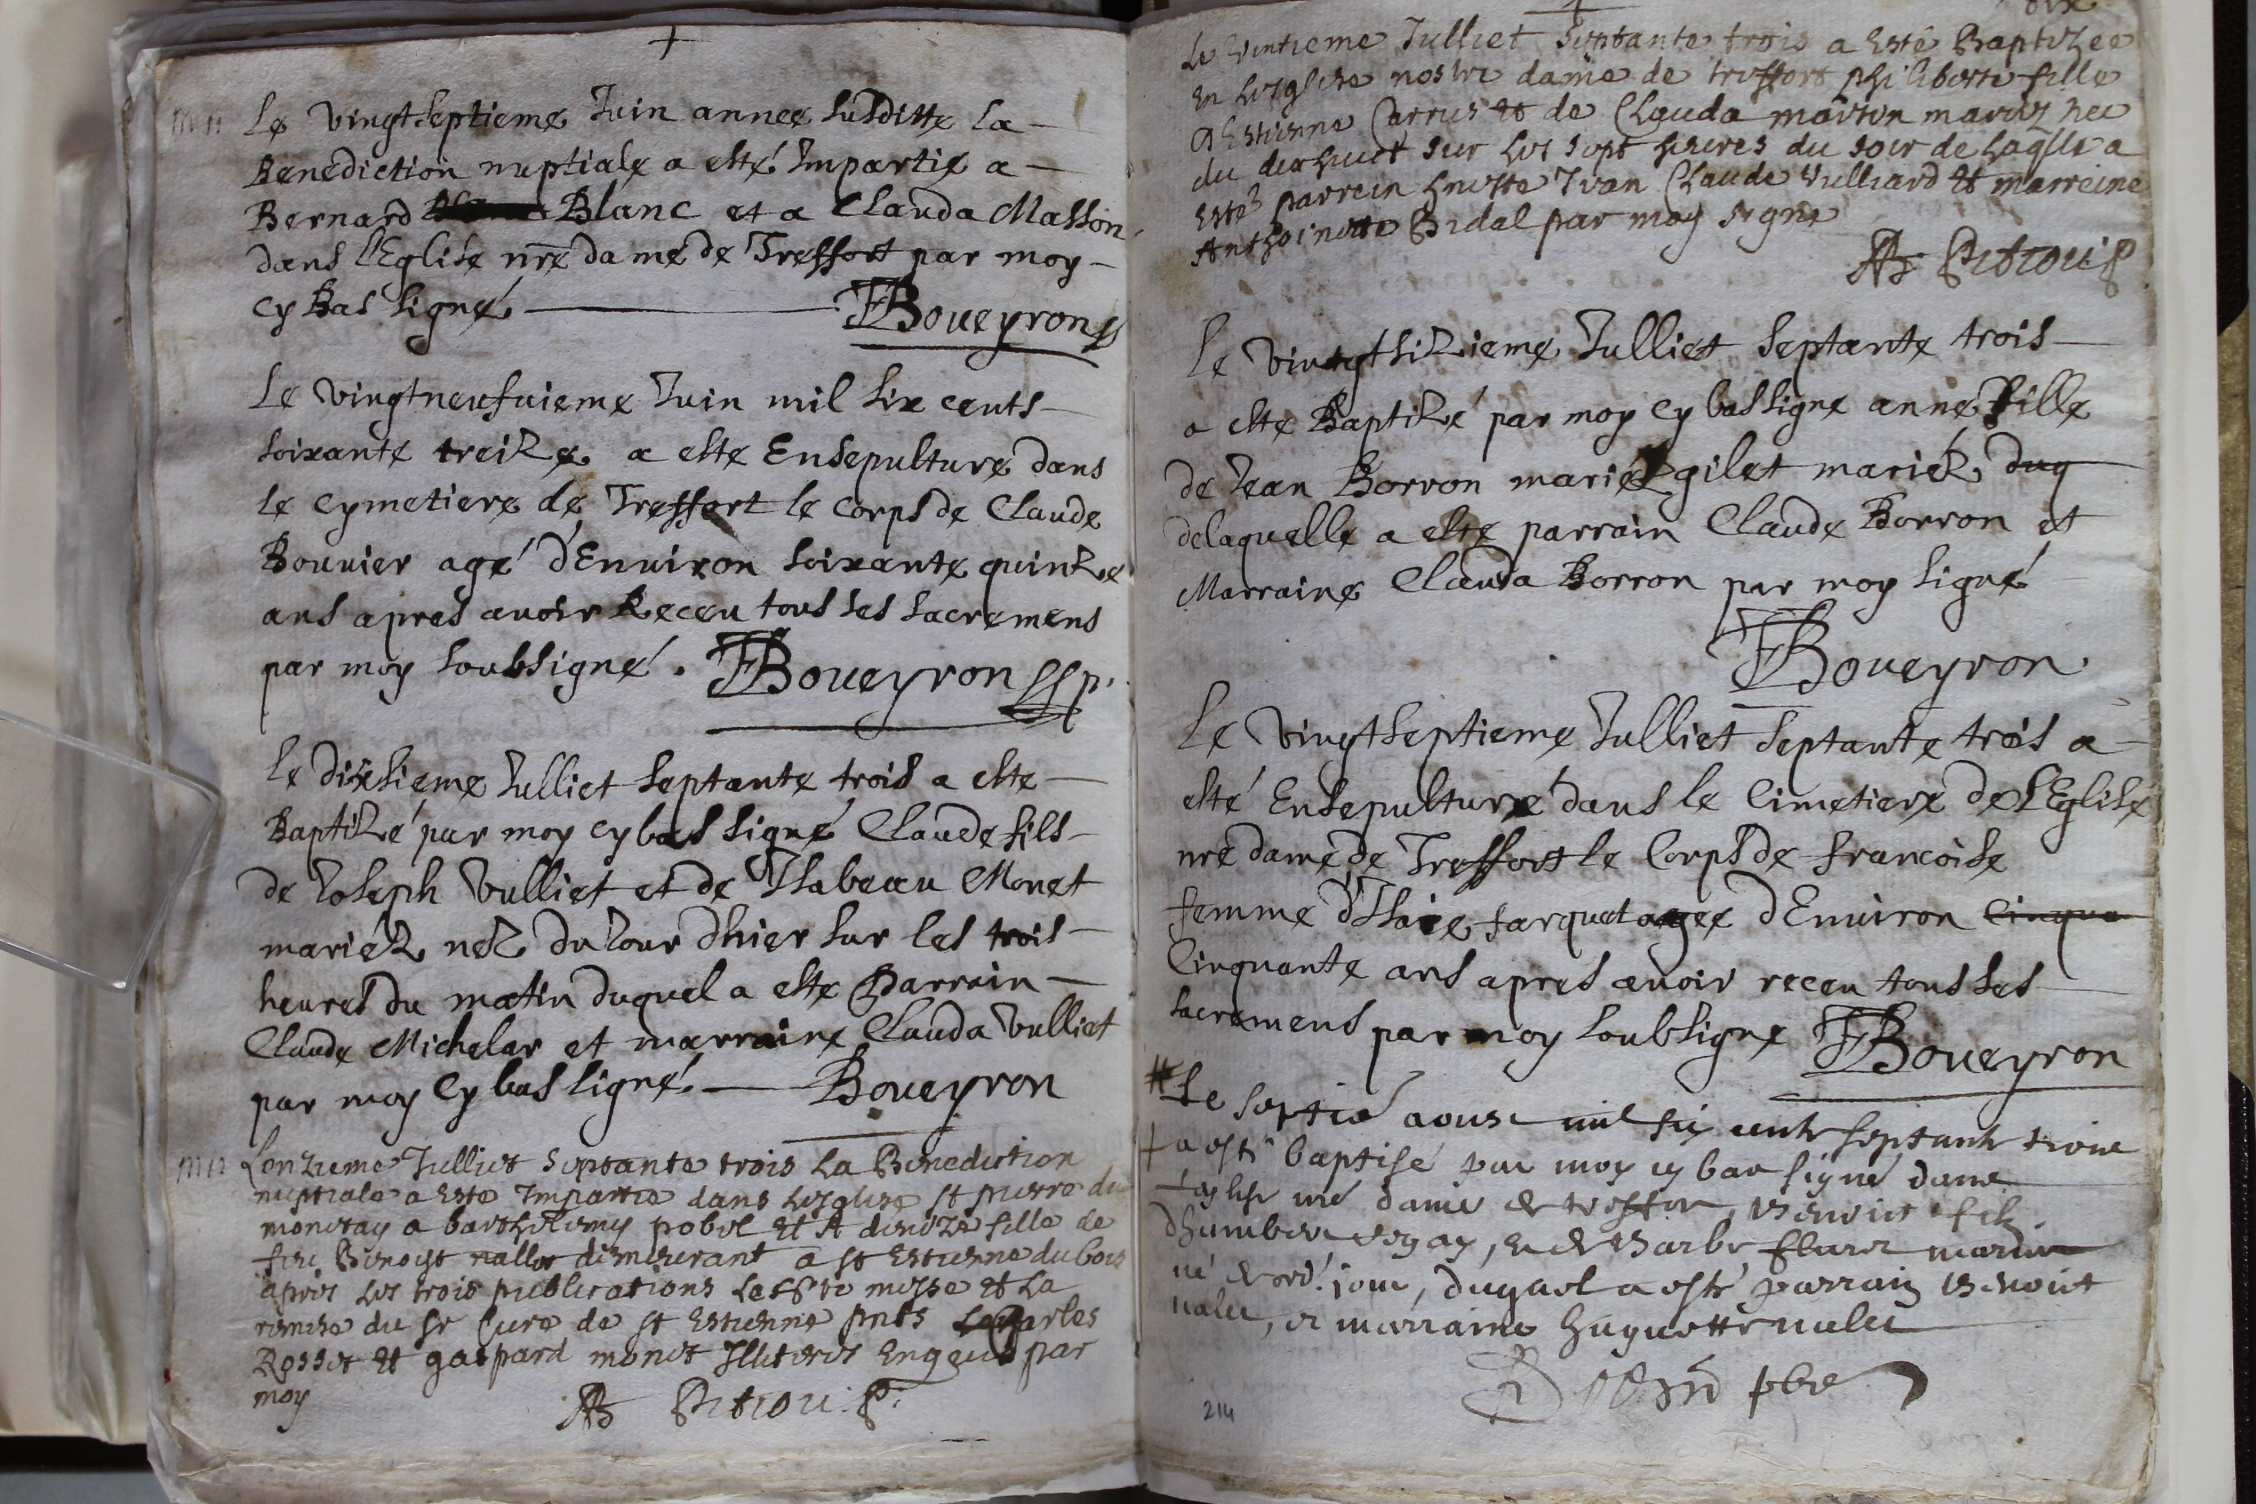 +
Le vingtseptieme Juin annee susditte la
Benediction nuptiale a esté Impartie a
Bernard Blanc et a Clauda Masson
dans l'Eglise nre dame de Treffort par moy
cy Bas signé JBoueyron
Le vingtneufuieme Juin mil six cents
soixante treize a este Ensepulture dans
le cymetiere de Treffort le corps de Claude
Bouuier agé d'Enuiron soixante quinze
ans apres auoir Receu tous ses sacremens
par moy soubsigné. JBoueyron
Le dixsieme Julliet septante trois a este
Baptizé par moy cy bas signé Claude fils
de Joseph Vulliet et de Isabeau Monet
mariéz néz du Jour dhier sur les trois
heures du matin duquel a este Parrain
Claude Michelar et marraine Clauda Vulliet
par moy Cy bas signé Boueyron
Lonzieme Julliet septante trois La Benediction
nuptiale a Este Impartie dans Lesglise st pierre du
montay a barthelemy pobel Et A denize fille de
feu Benoist nallet demeurant a st Estienne du bois
apres Les trois publications messe Et La
remise du sr Cure de st Estienne pnts Charles
Rosset Et gaspard monet Illiteres Enquis par
moy
Le vintieme Julliet septante trois a Esté Baptizee
En Lesglise nostre dame de treffort philiberte fille
d Estienne Carrus Et de Clauda marton mariez nee
du dixhuict sur Les sept heures du soir de Laqlle a
Esté parrein Claude Vulliard Et marreine
Anthoinette Bidal par moy signé
Le vingtsizieme Julliet septante trois
a este Baptizé par moy cy bas signe anne fille
de Jean Borron marie gilet mariéz duq
delaquelle a este parrain Claude Borron et
Marraine Clauda Borron par moy signé
JBoueyron
Le vingtseptieme Julliet septante trois a
esté Ensepulture dans le Cimetiere de L'Eglise
nre dame de Treffort le Corps de francoise
femme d'Isaie farquet agee d'Enuiron Cinqua
Cinquante ans apres auoir receu tous ses
sacremens par moy soubsigne JBoueyron
# Le septie aoust mil six cents septante trois
+ a esté baptisé par moy cy bas signé dans
leglise nre dame de treffort, benoit filz
dhumbert, et de Barbe mariez
né jour, duquel a esté parrain benoit
nalet, et marraine huguette nalet
pbre
214